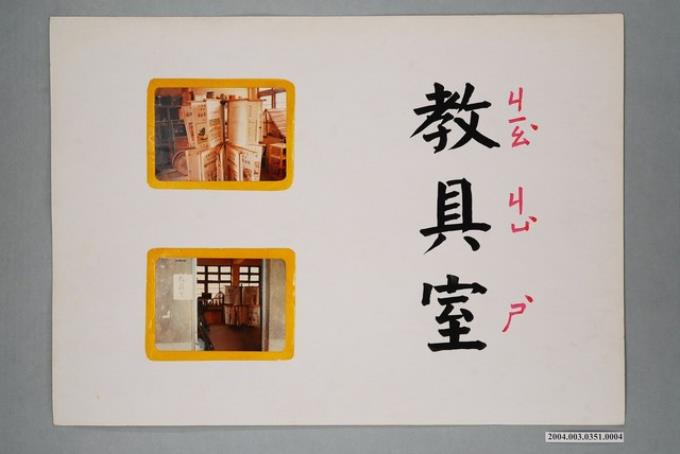 教具室
ㄐㄧㄠˋ ㄐㄩˋ ㄕˋ
2004.003.0351.0004